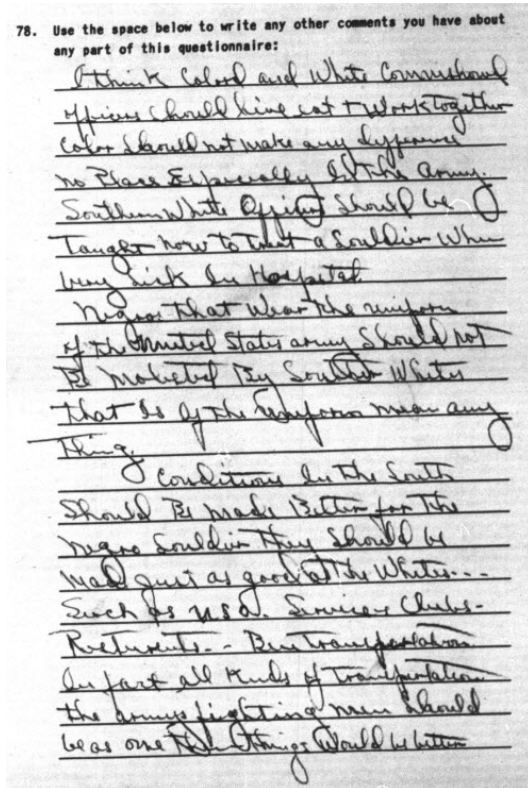 78. Use the space below to write any other comments you have about
any part of this questionnaire:
I think Colord and White Commishond
officers Should live eat + Work together
Color Should not make any
no Place Especially In The Army.
Southern White Officers Should be
Taught how to treat a Souldier When
very Sick In Hospital
Negros That Wear The uniform
of the United States army Should not
Be Molested By Whites
That Is if The Uniform mean any
Thing.
Conditions In the South
Should Be made Better for The
Negro Souldier They Should be
made just as good as The Whites...
Such as USO. Services Clubs-
.. Bus Transportation
In fact all Kinds of Transportation
the armys fighting men Should
be as one Then things Would be better